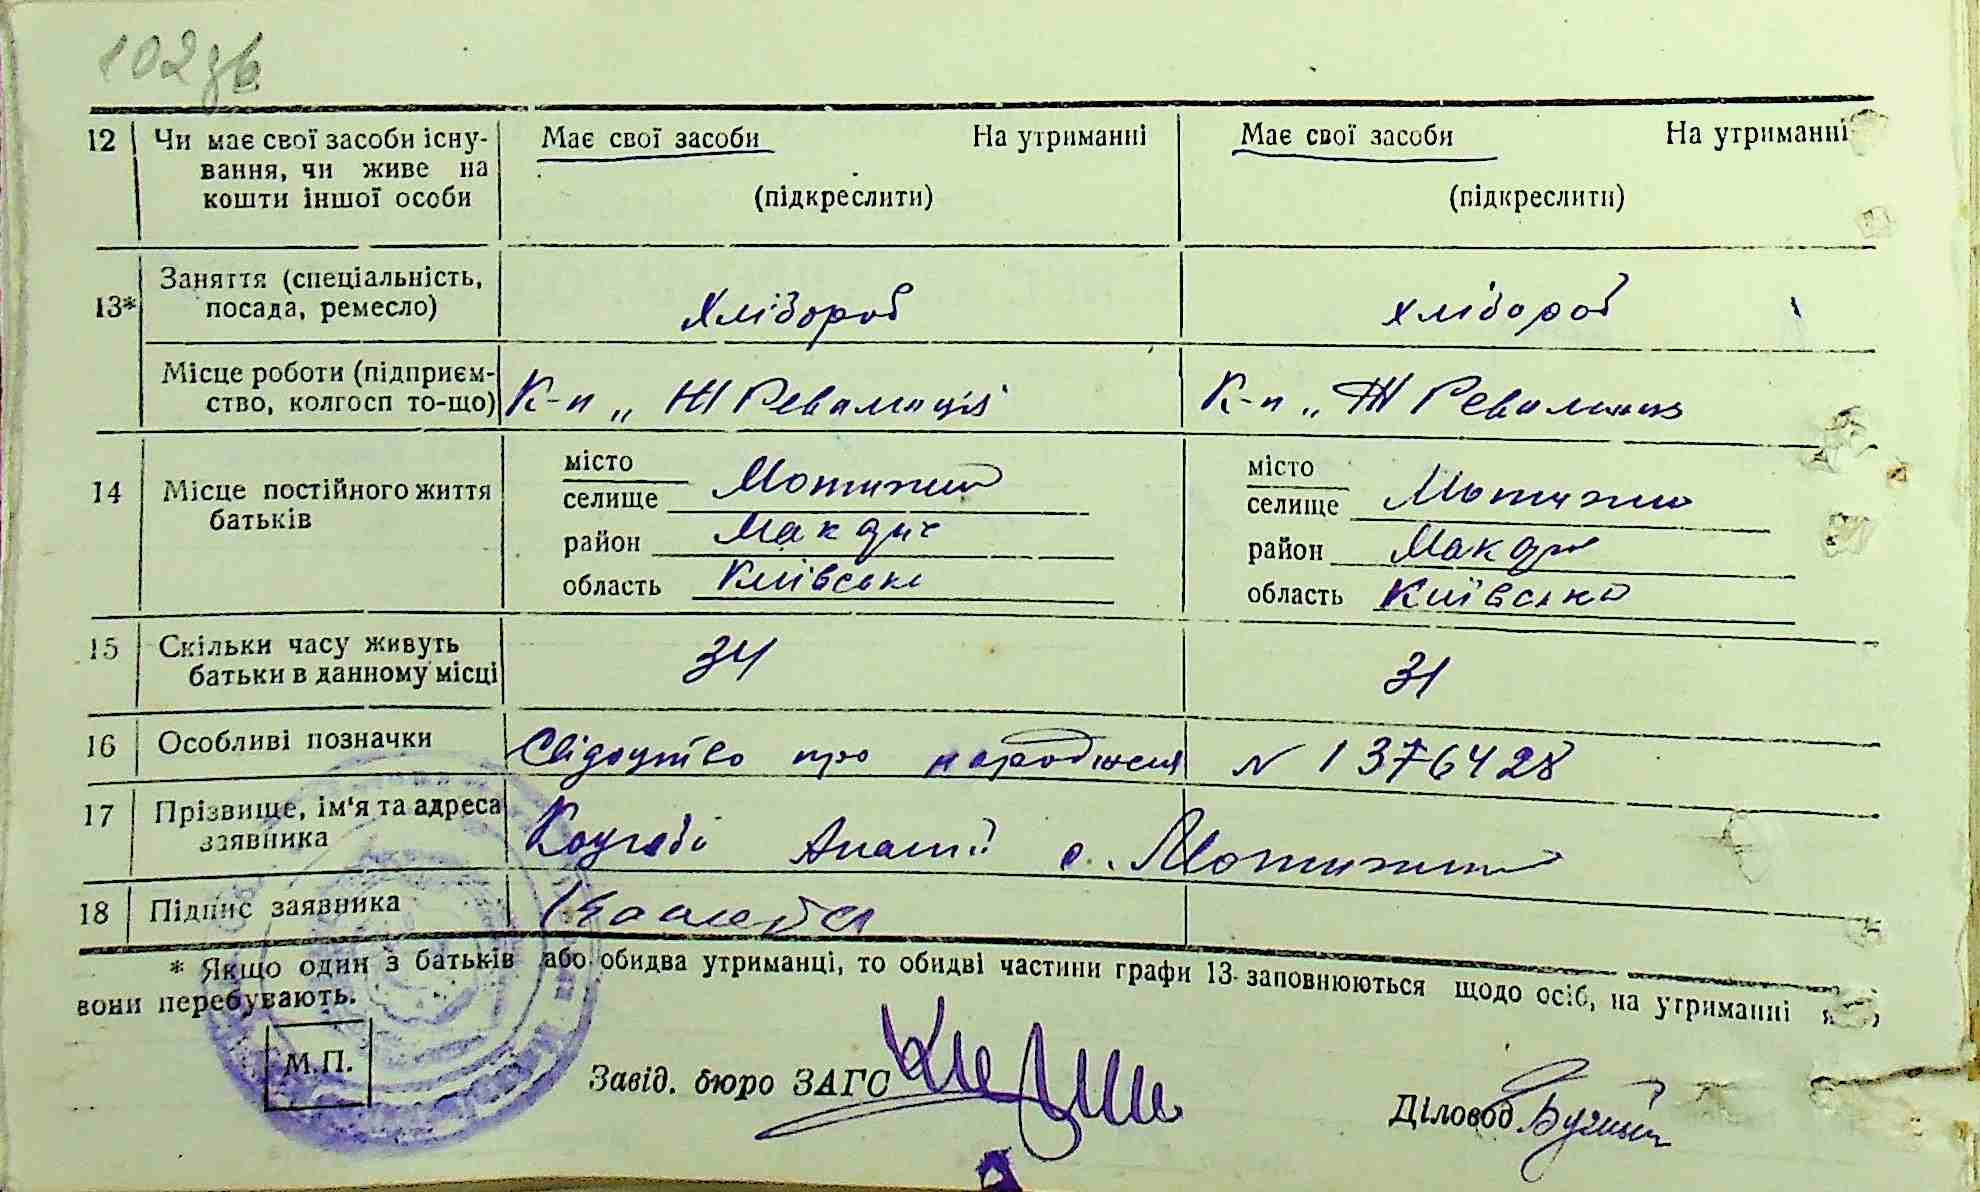 102зв
12 Чи має свої засоби існу- Має свої засоби На утриманні Має свої засоби На утриманні
вання, чи живе на
кошти іншої особи (підкреслити) (підкреслити)
Заняття (спеціальність,
13* посада, ремесло) Хлібороб хлібороб
Місце роботи (підприєм-
ство, колгосп то-що) К-п „ ЖРеволюція К-п „ Ж Революція
місто місто
14 Місце постійного життя селище Мотижин селище Мотижин
батьків район Макарів район Макарів
область Київська область Київська
15 Скільки часу живуть 34 31
батьки в данному місці
16 Особливі позначки Свідоцтво про народження N 1376428
17 Прізвище, ім'я та адреса
заявника с. Мотижин
18 Підпис заявника
* Якщо один з батьків або обидва утриманці, то обидві частини графи 13 заповнюються щодо осіб, на утриманні
вони перебувають.
М.П.
Завід. бюро ЗАГС
Діловод